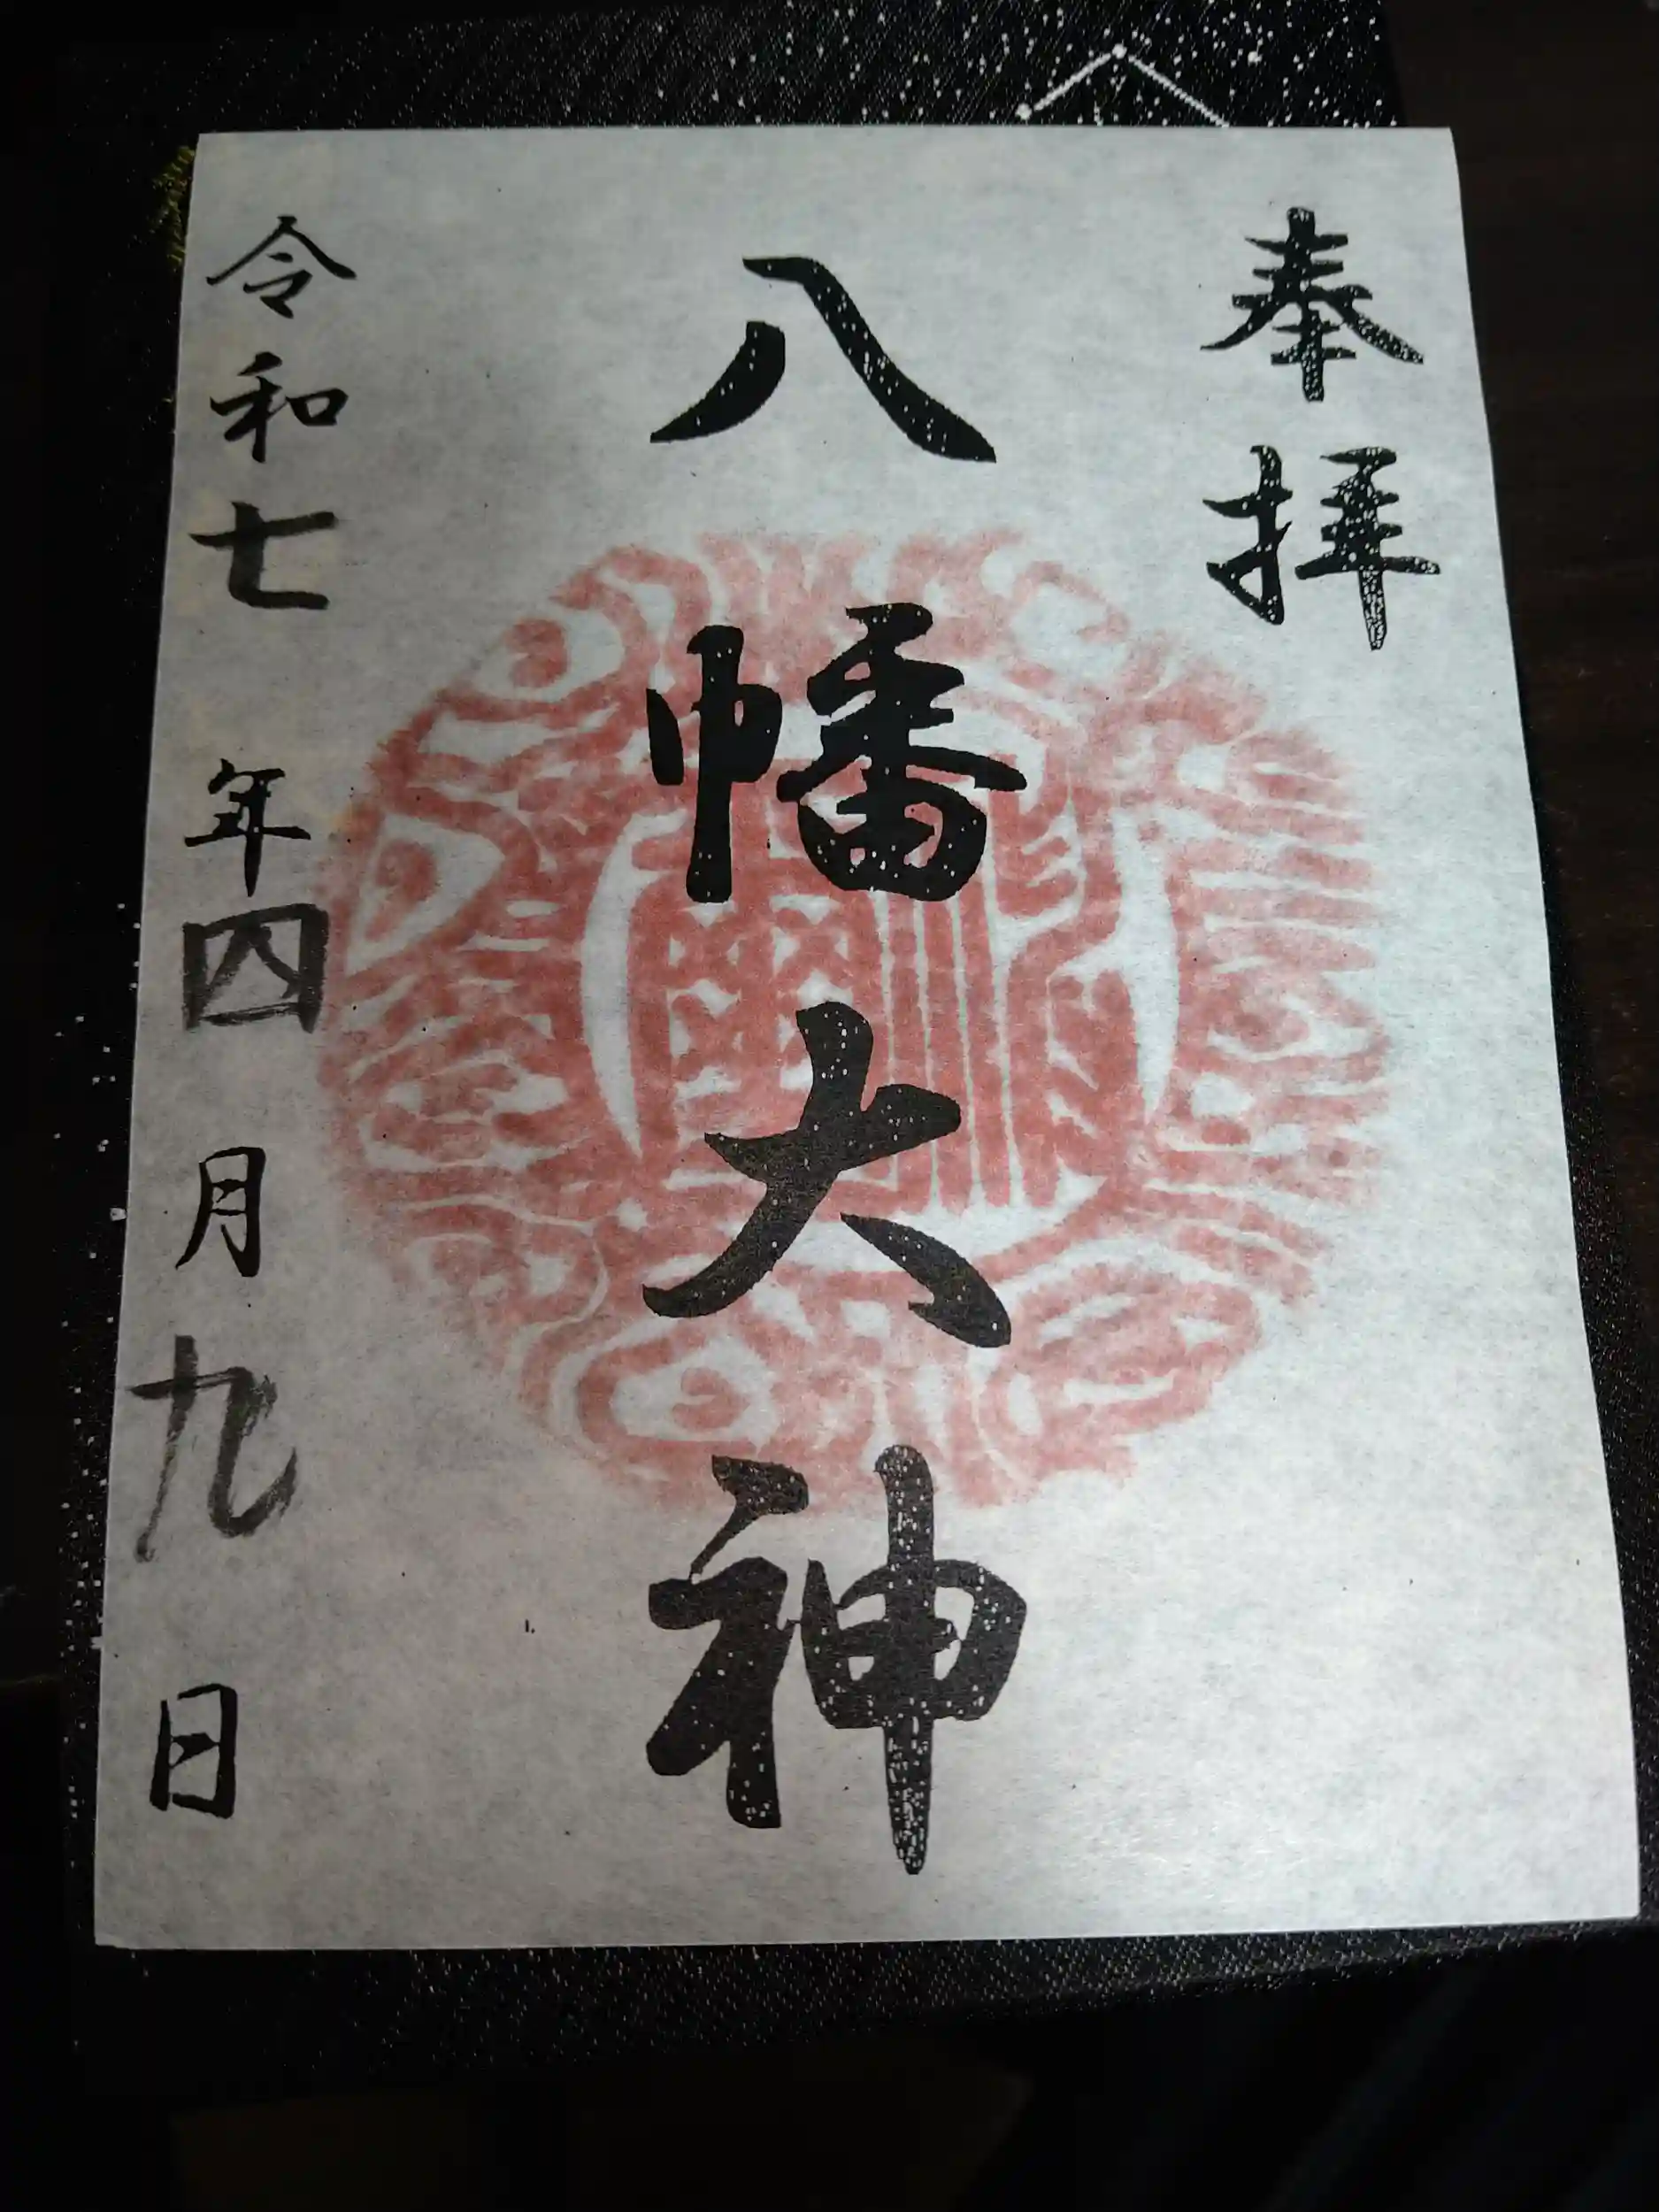 奉拝
八幡大神
令和七年四月九日